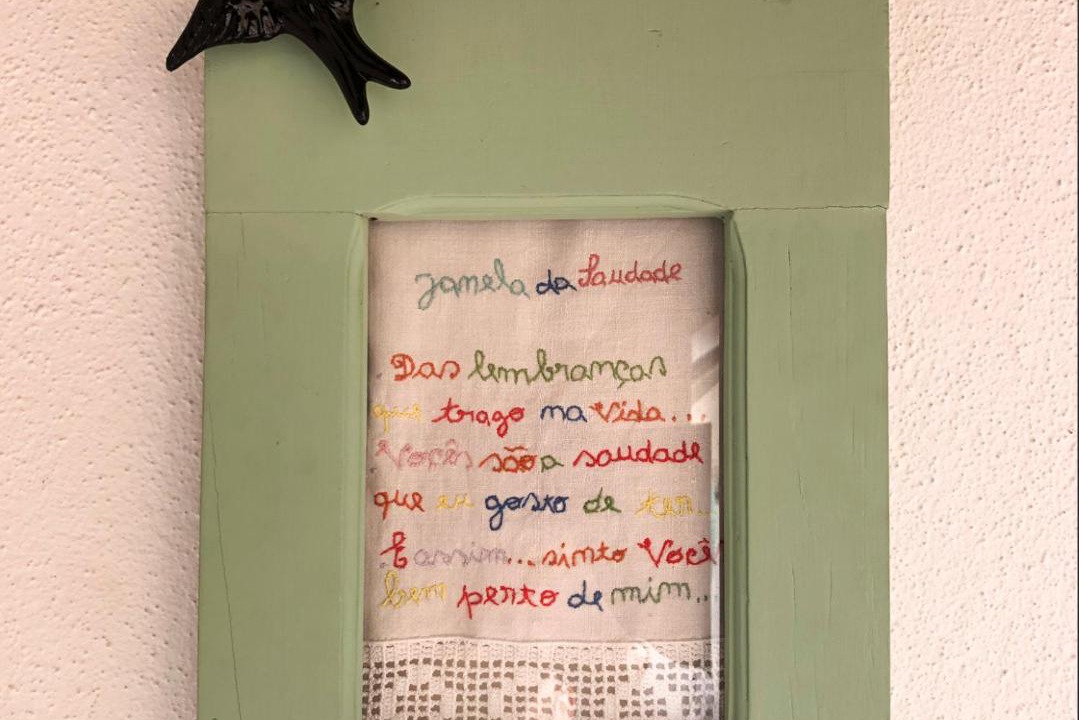 Janela da Saudade
Das lembranças
que trago na Vida...
Vocês são a saudade
que eu gosto de ter..
E assim... sinto Você
bem perto de mim..